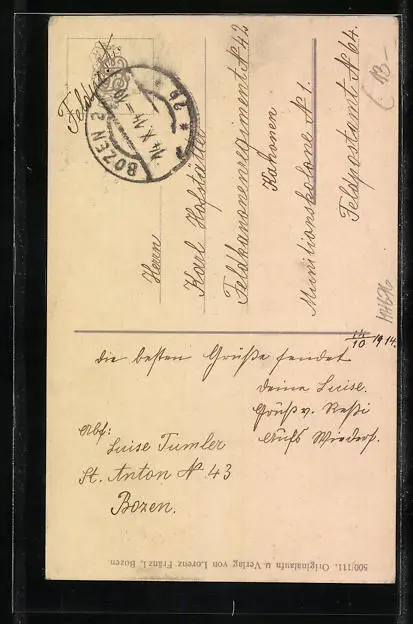 Feldpost.
BOZEN 2
14.X.14
2b
Herrn
Karl Hofstätter
Feldkanonenregiment N 42
Kanonen
Munitionskolone N 1.
Feldpostamt N 64.
13-
14/10 1914.
die besten Grüße sendet
deine Luise.
Gruß v. Resi
Aufs Wieders.
Abs:
Luise Tumler
St. Anton N 43
Bozen.
500/111. Originalaufn u. Verlag von Lorenz Fränzl, Bozen.